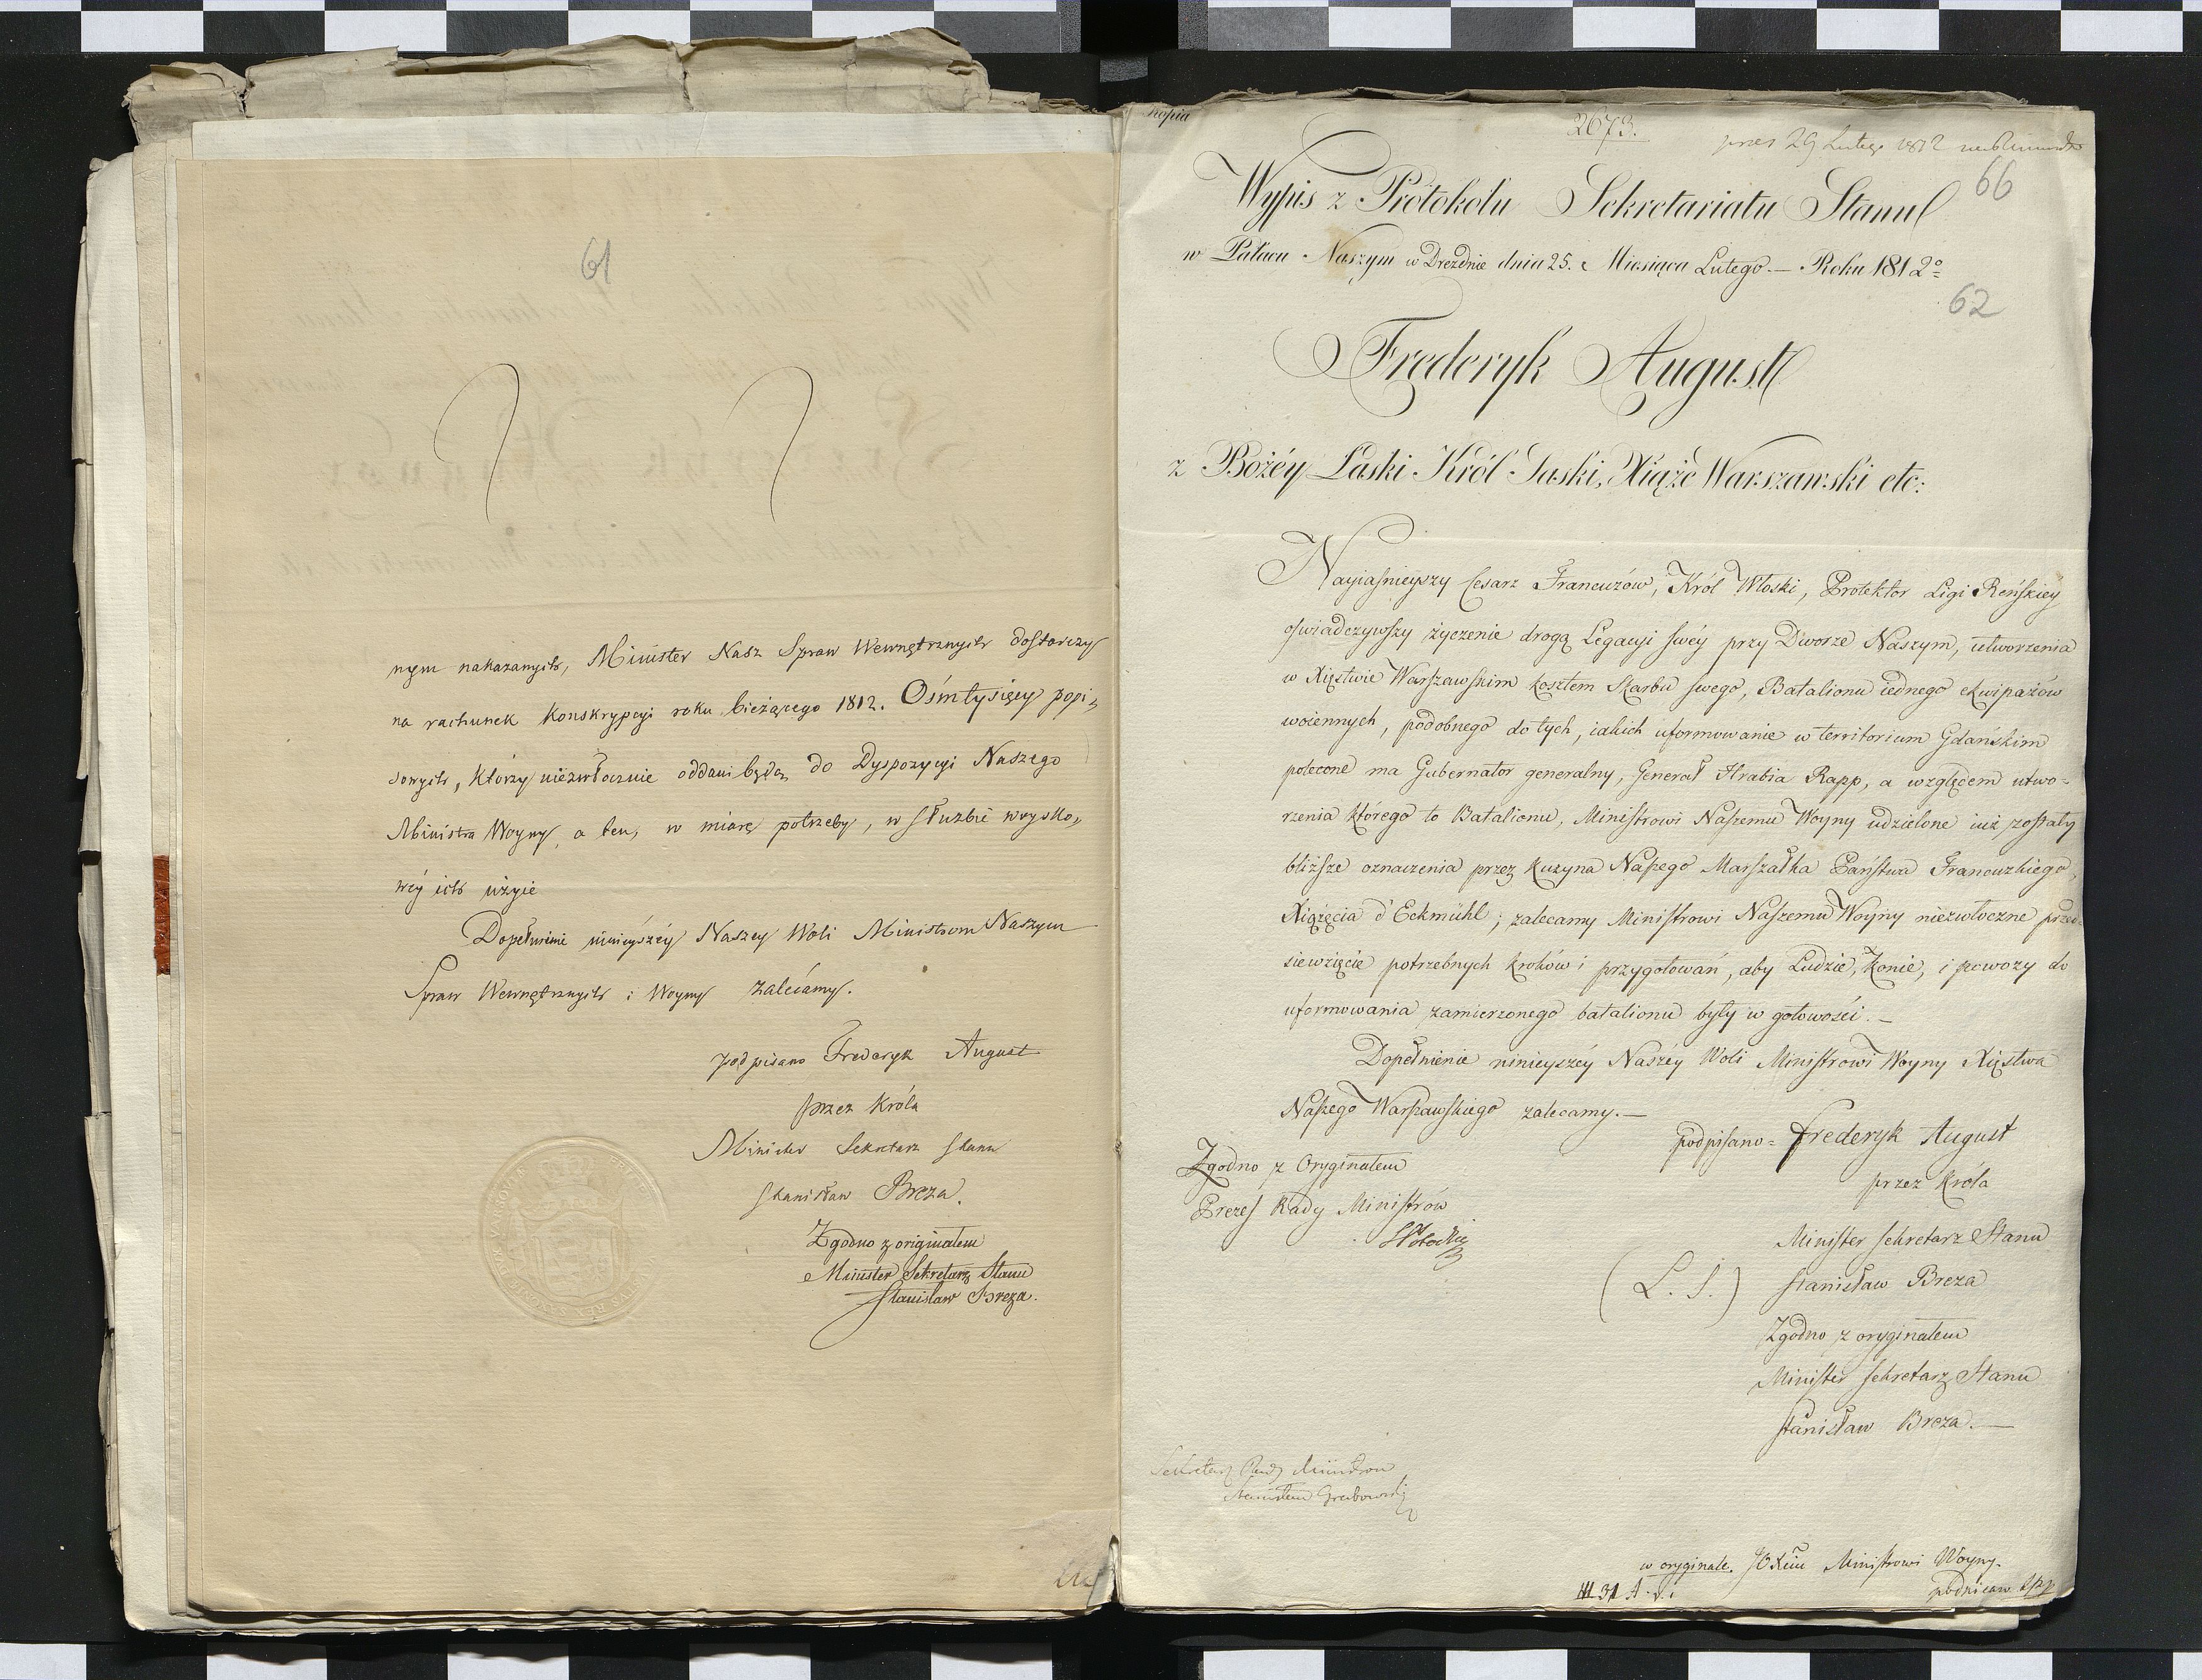 61
nym nakazanych, Minister Nasz Spraw Wewnętrznych dostarczy
na rachunek Konskrypcyi roku bieżącego 1812. Ośmtysięcy popi-
sowych, którzy niezwłocznie oddani będą do Dyspozycyi Naszego
Ministra Woyny, a ten, w miarę potrzeby, w służbie woysko-
wéy ich użyie
Dopełnienie ninieyszéy Naszey Woli Ministrom Naszym
Spraw Wewnętrznych i Woyny zalécamy.
podpisano Frederyk August
przez Króla
Minister Sekretarz Stanu
Stanisław Breza.
Zgodno z originałem
Minister Sekretarz Stanu
Stanisław Breza.
Kopia
2673.
przes 29 Lutego 1812
66
Wypis z Protokołu Sekretariatu Stanu
w Pałacu Naszym w Dreźdnie dnia 25. Miesiąca Lutego — Roku 1812º
62
Frederyk August
z Bożéy Łaski Król Saski, Xiąże Warszawski etc:
Nayiaśnieyszy Cesarz Francuzów, Król Włoski, Protektor Ligi Reńskiey
oświadczywszy życzenie drogą Legacyi swéy przy Dworze Naszym, utworzenia
w Xięstwie Warszawskim kosztem Skarbu swego, Batalionu iednego ekwipażów
woiennych, podobnego do tych, iakich uformowanie w territorium Gdańskim
polecone ma Gubernator generalny, Generał Hrabia Rapp, a względem utwo-
rzenia którego to Batalionu, Ministrowi Naszemu Woyny udzielone iuż zostały
bliższe oznaczenia przez kuzyna Naszego Marszałka Państwa Francuzkiego,
Xiążęcia d'Eckmühl; zalecamy Ministrowi Naszemu Woyny niezwłoczne przed-
sięwzięcie potrzebnych kroków i przygotowań, aby Ludzie, konie, i powozy do
uformowania zamierzonego batalionu były w gotowości. —
Dopełnienie ninieyszéy Naszéy Woli Ministrowi Woyny Xięstwa
Naszego Warszawskiego zalecamy. —
podpisano = Frederyk August
przez Króla
Zgodno z Oryginałem
Prezes Rady Ministrów
Minister Sekretarz Stanu
(L. S.) Stanisław Breza
Zgodno z oryginałem
Minister Sekretarz Stanu
Stanisław Breza. —
Sekretarz Rady Ministrów
Stanisław Grabowski
w oryginale. Ministrowi Woyny.